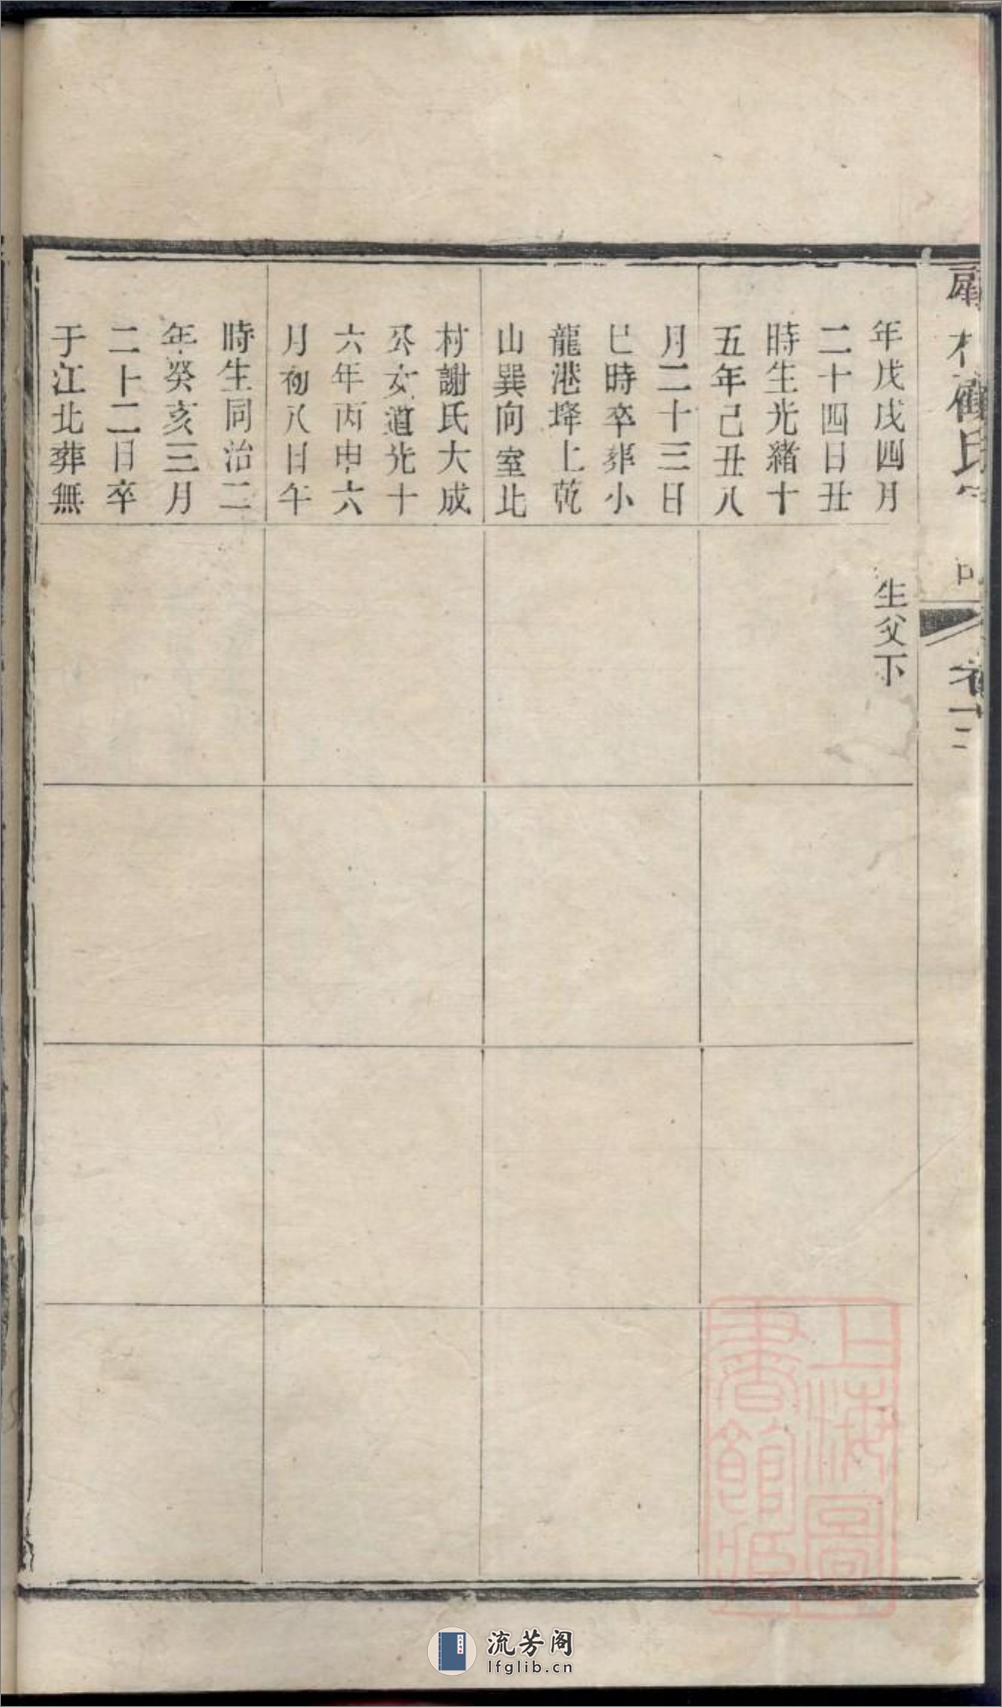 年戊戌四月
二十四日丑
時生光緒十
五年己丑八
月二十三日
巳時卒葬小
龍港埄上乾
山巽向室北
村謝氏大成
公女道光十
六年丙申六
月初八日午
時生同治二
年癸亥三月
二十二日卒
于江北葬無
生父下
卷十二
上海圖
書館藏
流芳阁
lfglib.cn